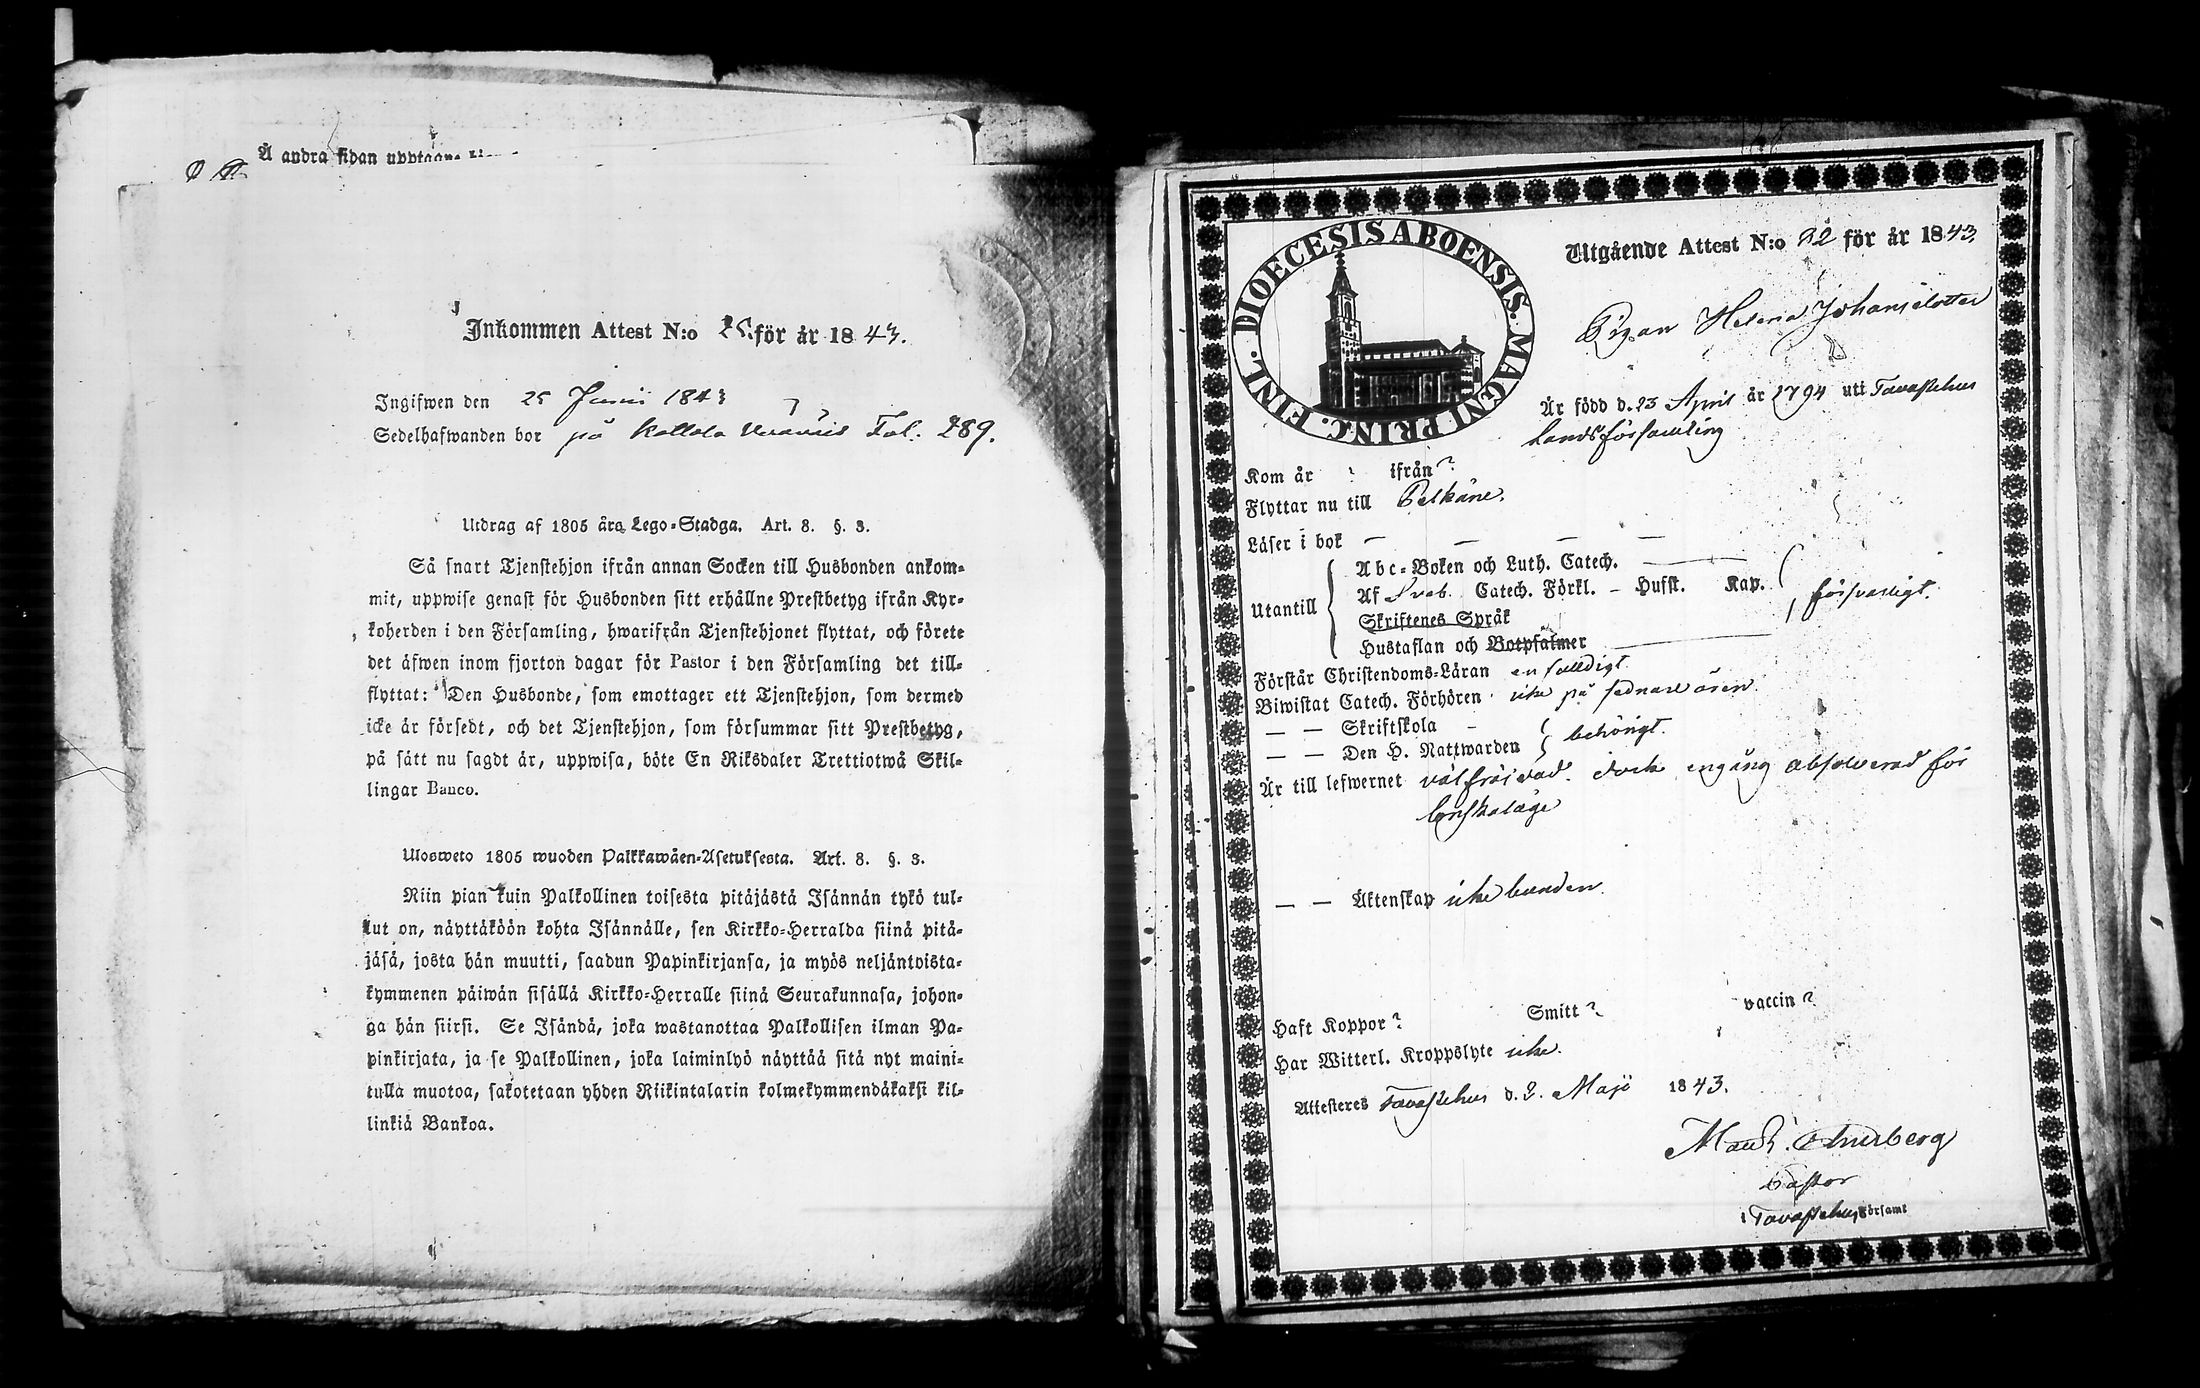 Å andra sidan upptagne
Inkommen Attest N:o 25. för år 1843.
Ingifwen den 25 Junii 1843
Sedelhafwanden bor på Kallala Fol. 289.
Utdrag af 1805 års Lego-Stadga. Art. 8. §. 3.
Så snart Tjenstehjon ifrån annan Socken till Husbonden ankom-
mit, uppwise genast för Husbonden sitt erhållne Prestbetyg ifrån Kyr-
koherden i den Församling, hwarifrån Tjenstehjonet flyttat, och förete
det äfwen inom fjorton dagar för Pastor i den Församling det till-
flyttat: Den Husbonde, som emottager ett Tjenstehjon, som dermed
icke är försedt, och det Tjenstehjon, som försummar sitt Prestbetyg,
på sätt nu sagdt är, uppwisa, böte En Riksdaler Trettiotwå Skil-
lingar Banco.
Ulosweto 1805 wuoden Palkkawäen-Asetuksesta. Art. 8. §. 3.
Niin pian kuin Palkollinen toisesta pitäjästä Isännän tykö tul-
lut on, näyttäköön kohta Isännälle, sen Kirkko-Herralda siinä pitä-
jäsä, josta hän muutti, saadun Papinkirjansa, ja myös neljäntoista-
kymmenen päiwän sisällä Kirkko-Herralle siinä Seurakunnasa, johon-
ga hän siirsi. Se Isändä, joka wastanottaa Palkollisen ilman Pa-
pinkirjata, ja se Palkollinen, joka laiminlyö näyttää sitä nyt maini-
tulla muotoa, sakotetaan yhden Riikintalarin kolmekymmendäkaksi kil-
linkiä Bankoa.
DIOECESIS ABOENSIS. MAGNI PRINC. FINL.
Utgående Attest N:o 82 för år 1843.
Pigan Helena Johansdotter
Är född d. 23 April år 1794 uti Tavastehus
Landsförsamling
Kom år ? ifrån ?
Flyttar nu till Pelkäne.
Läser i bok — — — —
Utantill
Abc-Boken och Luth. Catech. ——
Af Sveb. Catech. Förkl. – Hufst. Kap.
Skriftenes Språk
Hustaflan och Botpsalmer ——
försvarligt.
Förstår Christendoms-Läran enfaldigt.
Biwistat Catech. Förhören icke på sednare åren.
— — Skriftskola –
— — Den H. Nattwarden
behörigt.
Är till lefwernet välfräjdad. dock engång absolverad för
lönskaläge
— — Äktenskap icke bunden.
Haft Koppor ? Smitt ? vaccin ?
Har Witterl. Kroppslyte icke.
Attesteres Tavastehus d. 2. Maji 1843.
Pastor
i Tavastehus Församl